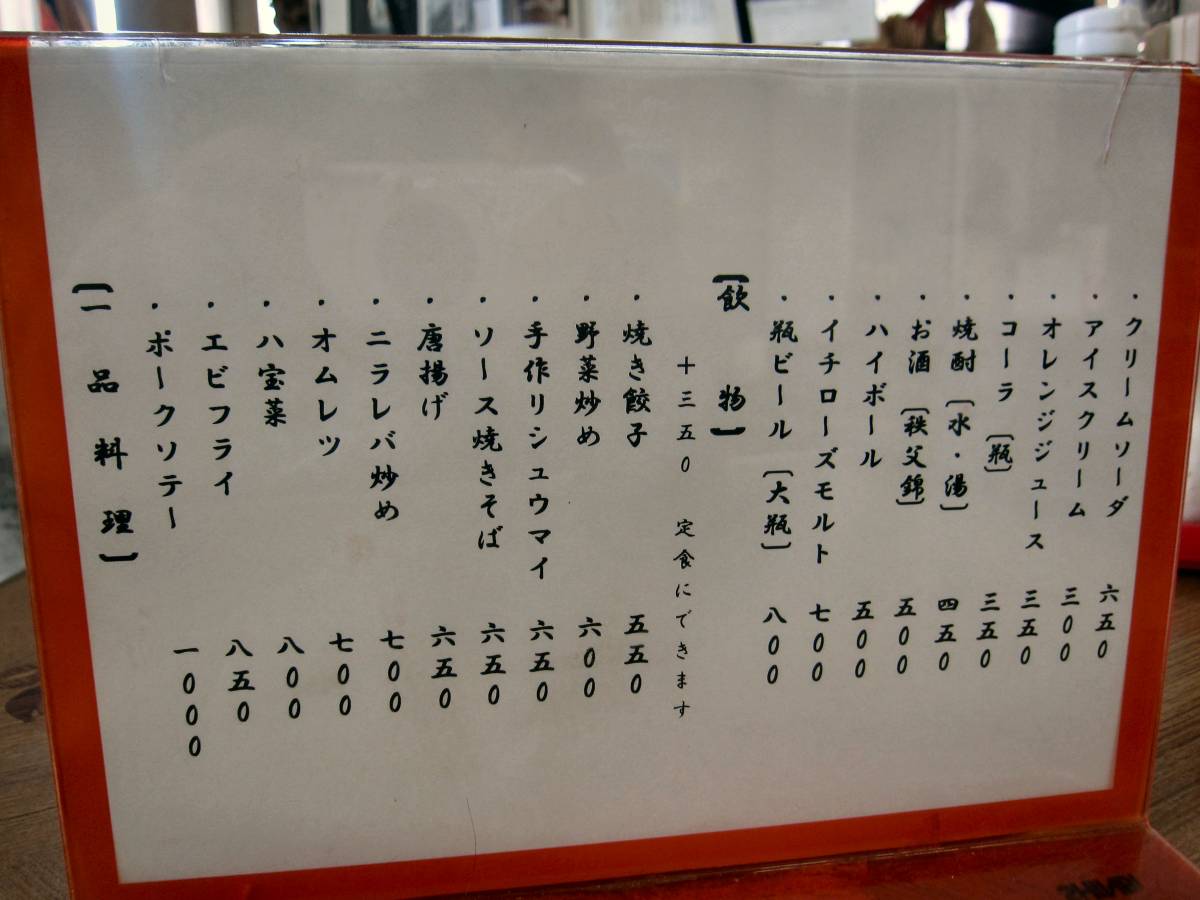 〔一品料理〕
・ポークソテー 一000
・エビフライ 八五0
・八宝菜 八00
・オムレツ 七00
・ニラレバ炒め 七00
・唐揚げ 六五0
・ソース焼きそば 六五0
・手作りシュウマイ 六五0
・野菜炒め 六00
・焼き餃子 五五0
十三五0 定食にできます
〔飲物〕
・瓶ビール〔大瓶〕 八00
・イチローズモルト 七00
・ハイボール 五00
・お酒〔秩父錦〕 五00
・焼酎〔水・湯〕 四五0
・コーラ〔瓶〕 三五0
・オレンジジュース 三五0
・アイスクリーム 三00
・クリームソーダ 六五0